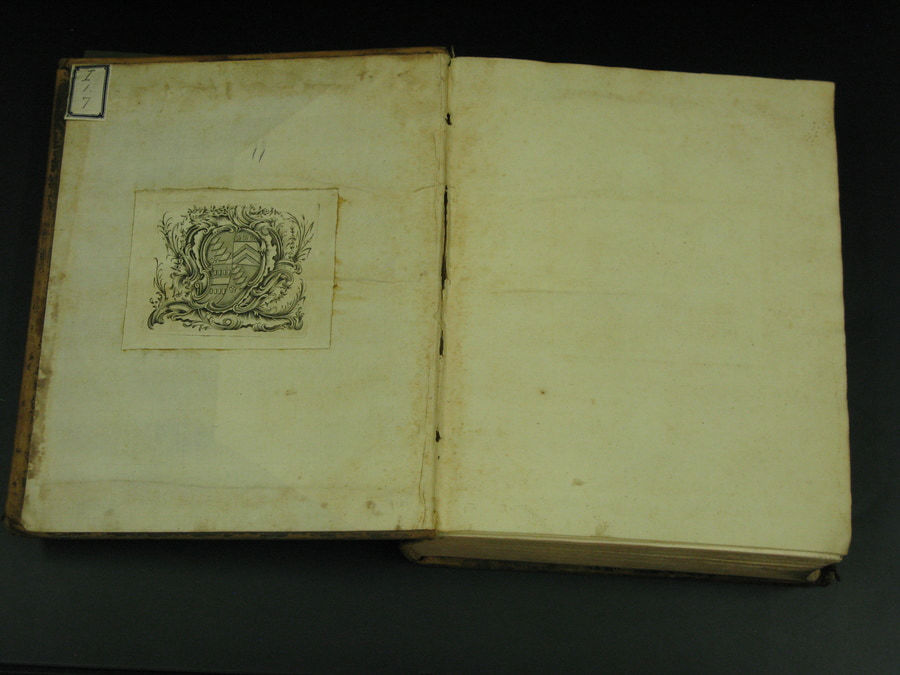 I
1.
7
11